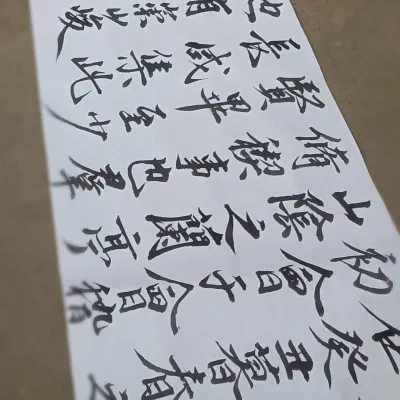 在癸丑暮春之
初會于會稽
山陰之蘭亭
脩禊事也群
賢畢至少
長咸集此
地有崇山峻